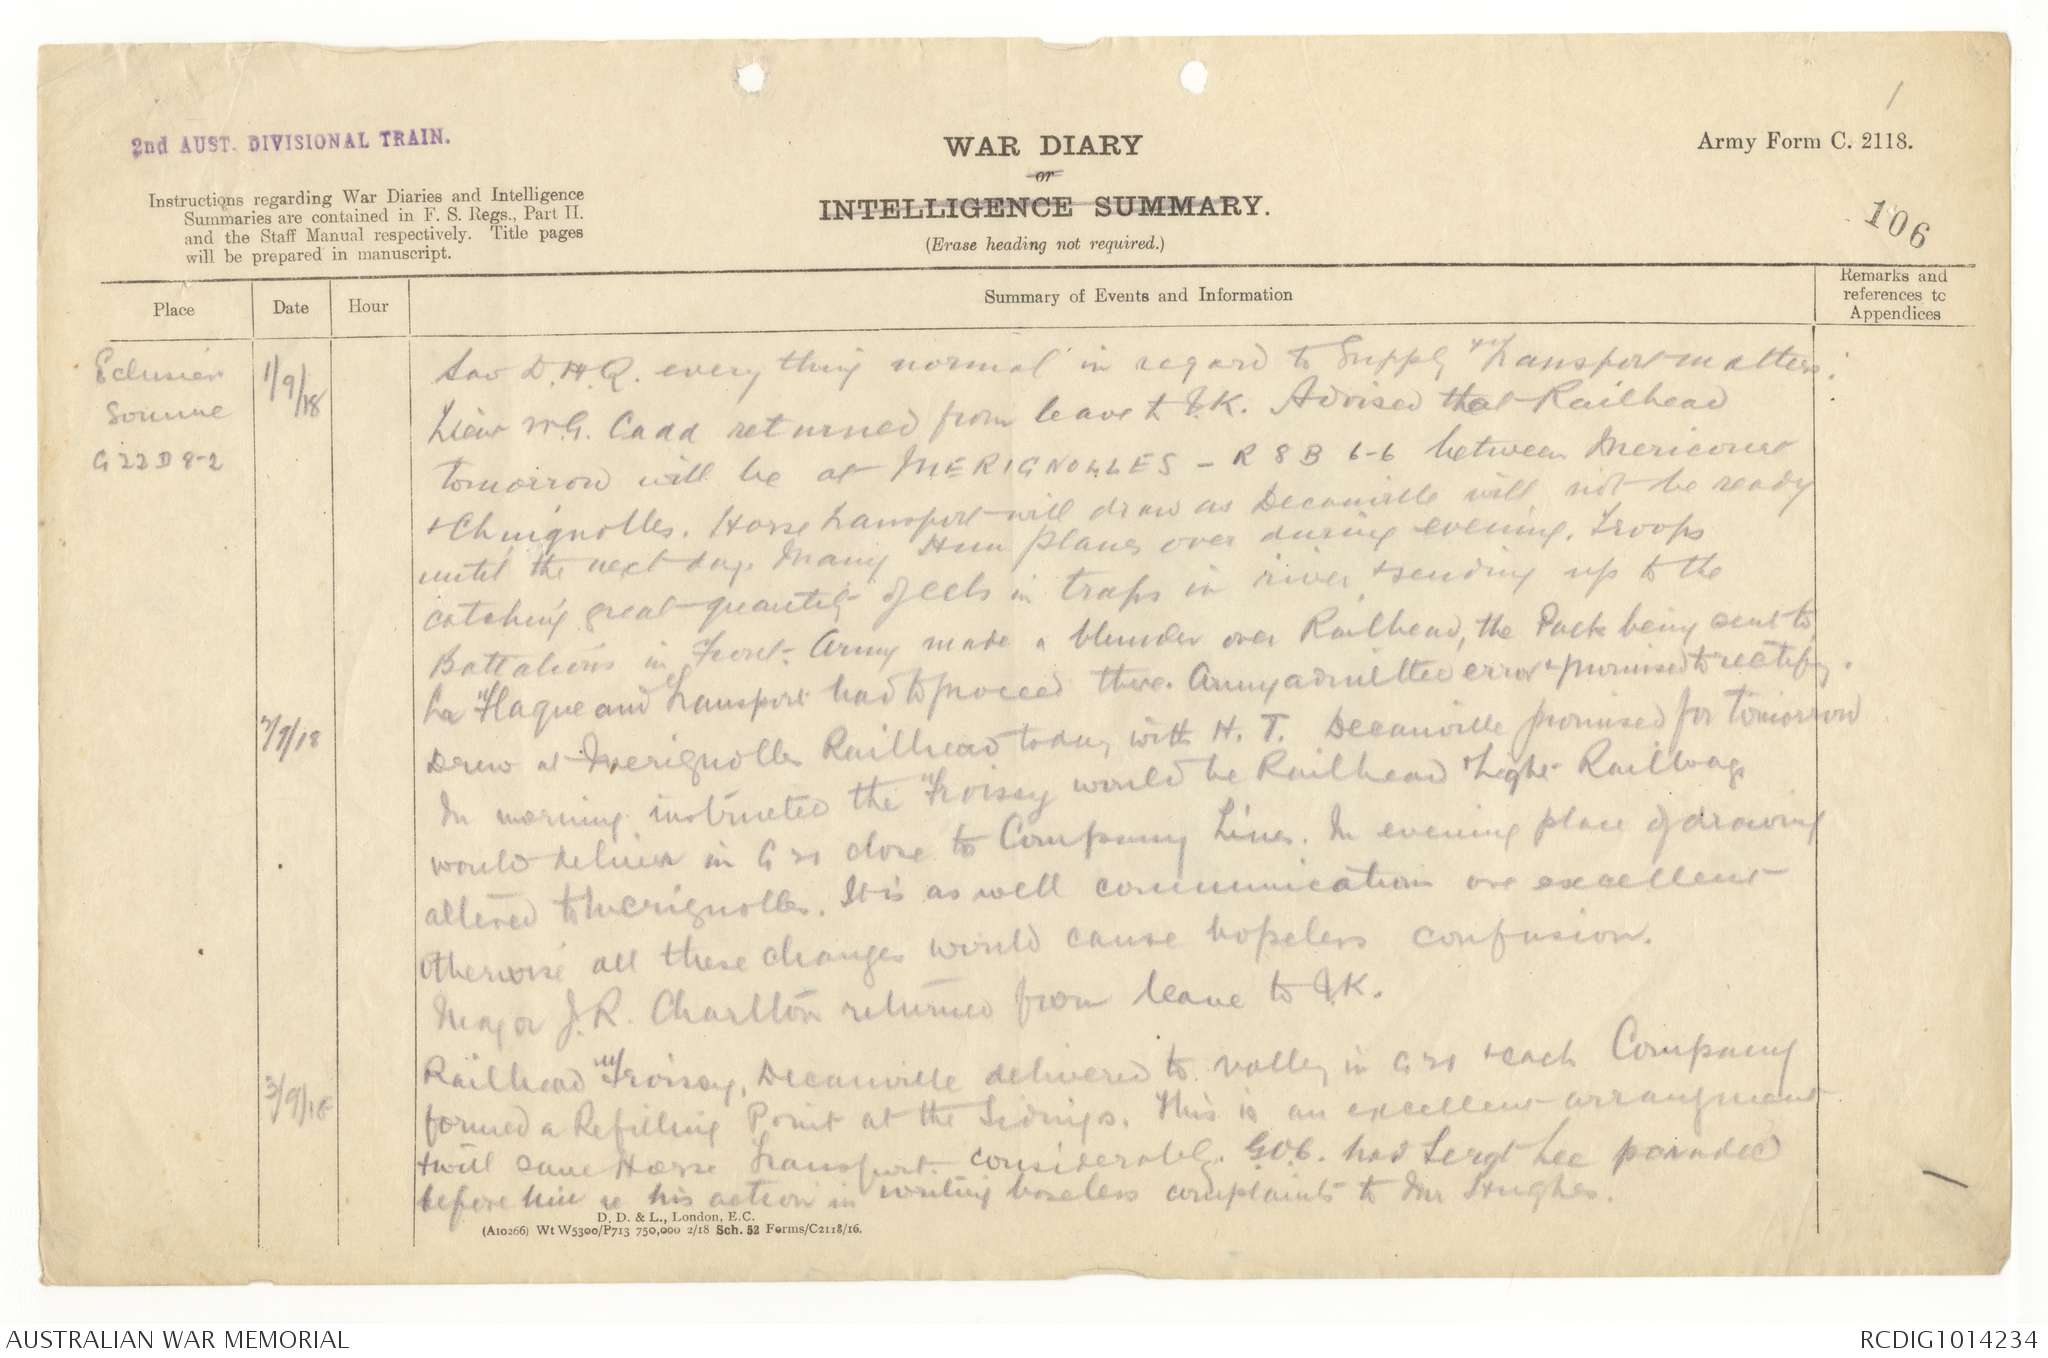 1
2nd AUST. DIVISIONAL TRAIN.
WAR DIARY
or
INTELLIGENCE SUMMARY.
(Erase heading not required.)
Army Form C. 2118.
106
Instructions regarding War Diaries and Intelligence
Summaries are contained in F. S. Regs., Part II.
and the Staff Manual respectively. Title pages
will be prepared in manuscript.
Place
Date
Hour
Summary of Events and Information
Remarks and
references to
Appendices
Eclusier
Somme
G 22 D 8-2
1/9/18
Saw D.H.Q. everything normal in regard to Supply & Transport matters.
Lieut W.G. Cadd returned from leave to U.K. Advised that Railhead
tomorrow will be at MERIGNOLLES - R 8 B 6-6 between Mericourt
& Chuignolles. Horse Transport will draw as Decauville will not be ready
until the next day. Many Hun planes over during evening. Troops
catching great quantity of eels in traps in river & sending up to the
Battalions in Front. Army made a blunder over Railhead, the Pack being sent to
La Flaque and Transport had to proceed there. Army admitted error & promised to rectify.
2/9/18
Drew at Merignolles Railhead today with H.T. Decauville promised for tomorrow
In morning instructed the Froissy would be Railhead & Light Railway
would deliver in G 21 close to Company Lines. In evening place of drawing
altered to Merignolles. It is as well communications are excellent
otherwise all these changes would cause hopeless confusion.
Major J.R. Charlton returned from leave to U.K.
3/9/18
Railhead Froissy, Decauville delivered to valley in G 21 & each Company
formed a Refilling Point at the Sidings. This is an excellent arrangment
& will save Horse Transport considerably. G.O.C. had Sergt Lee paraded
before him re his action in writing baseless complaints to Mr Hughes.
D. D. & L., London, E.C.
(A10266) Wt W5300/P713 750,000 2/18 Sch. 52 Forms/C2118/16.
AUSTRALIAN WAR MEMORIAL
RCDIG1014234